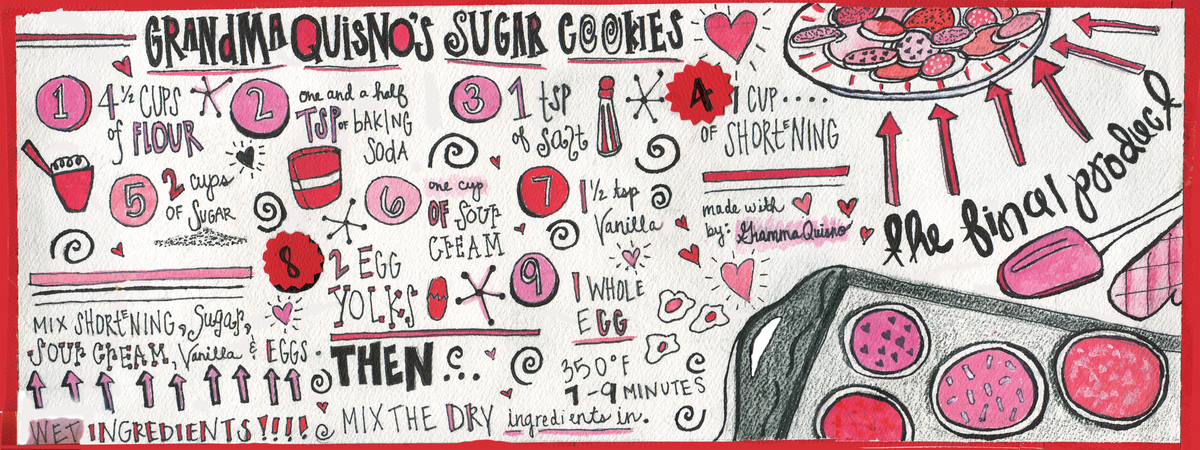 GRANdMA QUiSNO'S SUGAR COOKiES
1 4 1/2 CUPS of FLOUR
2 one and a half TSP OF bAKiNG SODA
3 1 tSP of salt
4 1 CUP.....
OF SHORtENiNG
5 2 cups OF SUGAR
6 one cup OF SOUR CREAM
7 1 1/2 tsp Vanilla
made with
by: GrammaQuisno
the final product
8 2 EGG YOLKS
9 1 WHOLE EGG
MiX SHORtENiNG, Sugar,
SOUR CREAM, Vanilla & EGGS.
WET iNGREDiENTS!!!!
THEN...
MiX THE DRY ingredients in.
350°F
7-9 MiNUTES